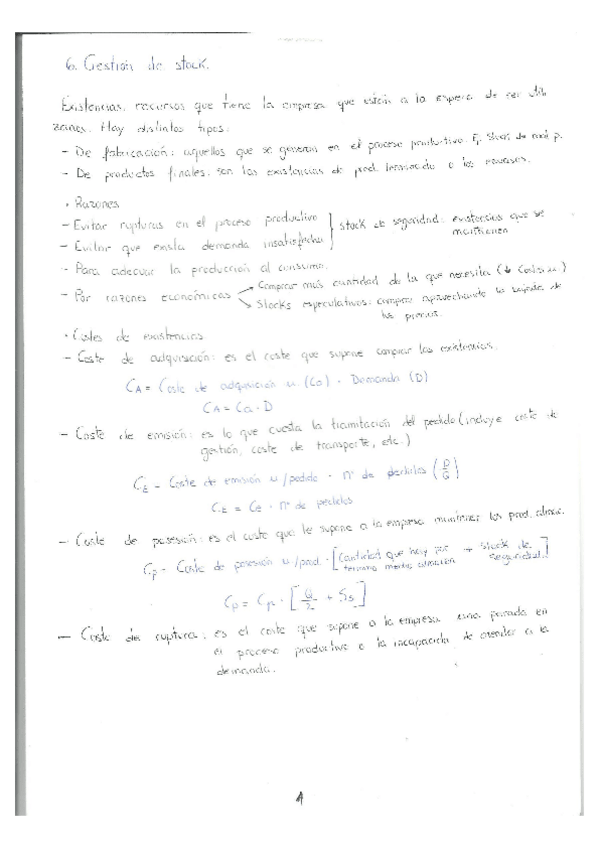 6. Gestión de stock.
Existencias: recursos que tiene la empresa que están a la espera de ser utili
zados. Hay distintos tipos:
- De fabricación: aquellos que se generan en el proceso productivo. Ej: Stock de mat p.
- De productos finales: son las existencias de prod. terminado o los envases.
· Razones
- Evitar rupturas en el proceso productivo
- Evitar que exista demanda insatisfecha
stock de seguridad: existencias que se
mantienen
- Para adecuar la producción al consumo.
- Por razones económicas
Comprar más cantidad de la que necesita (↓ Coste u)
Stocks especulativos: comprar aprovechando la bajada de
los precios.
· Costes de existencias
- Coste de adquisición: es el coste que supone comprar las existencias.
CA = Coste de adquisición u. (Ca) · Demanda (D)
CA = Ca · D
- Coste de emisión: es lo que cuesta la tramitación del pedido (incluye coste de
gestión, coste de transporte, etc.)
CE = Coste de emisión u/pedido · nº de pedidos (D/Q)
CE = Ce · nº de pedidos
- Coste de posesión: es el coste que le supone a la empresa mantener los prod. almac.
Cp = Coste de posesión u/prod · [Cantidad que hay por
término medio almacén + Stock de
seguridad]
Cp = Cp · [Q/2 + Ss]
- Coste de ruptura: es el coste que supone a la empresa una parada en
el proceso productivo o la incapacidad de atender a la
demanda.
1